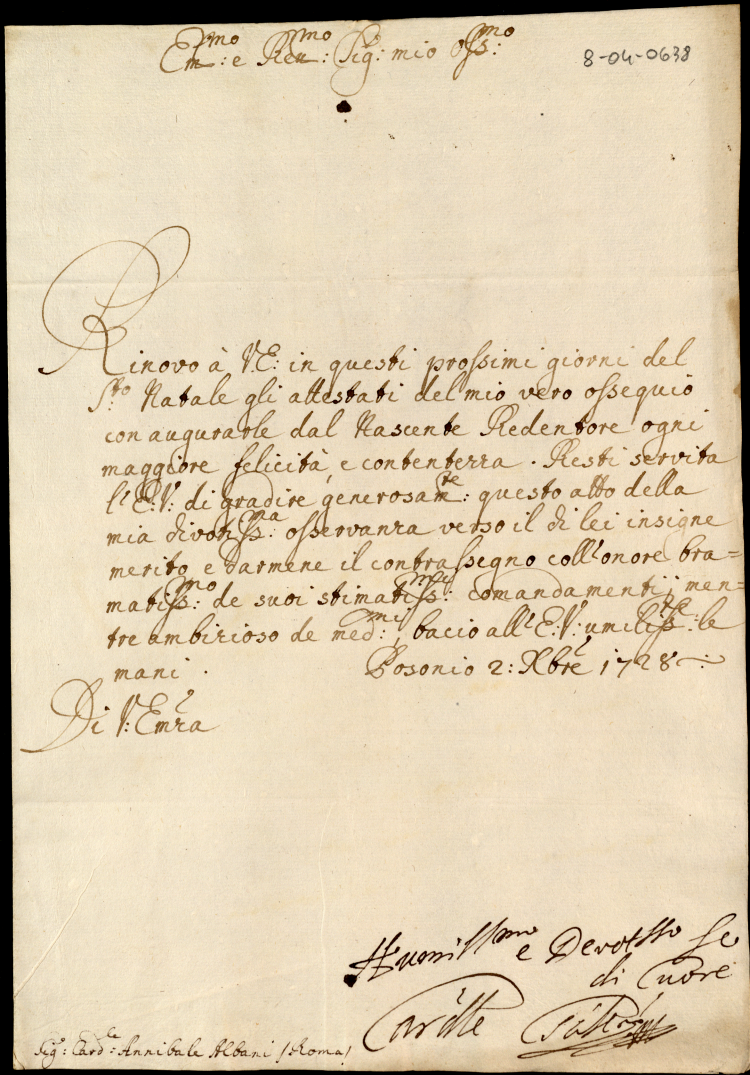 Em:mo e Reu:mo Sig: mio oss:mo
8-04-0638
Rinovo à V.E: in questi prossimi giorni del
S:to Natale gli attestati del mio vero ossequio
con augurarle dal Nascente Redentore ogni
maggiore felicità, e contentezza. Resti servita
l'E:V: di gradire generosam:te questo atto della
mia divotiss:a osservanza verso il di lei insigne
merito, e darmene il contrassegno coll'onore bra=
matiss:mo de suoi stimatiss:mi comandamenti; men=
tre ambizioso de med:mi, bacio all'E:V: umiliss:te le
mani.
Posonio 2: Xbre 1728
Di V: Emza
Humilissmo e Devotsso se
di Cuore
Cardle
Sig: Card:le Annibale Albani (Roma)